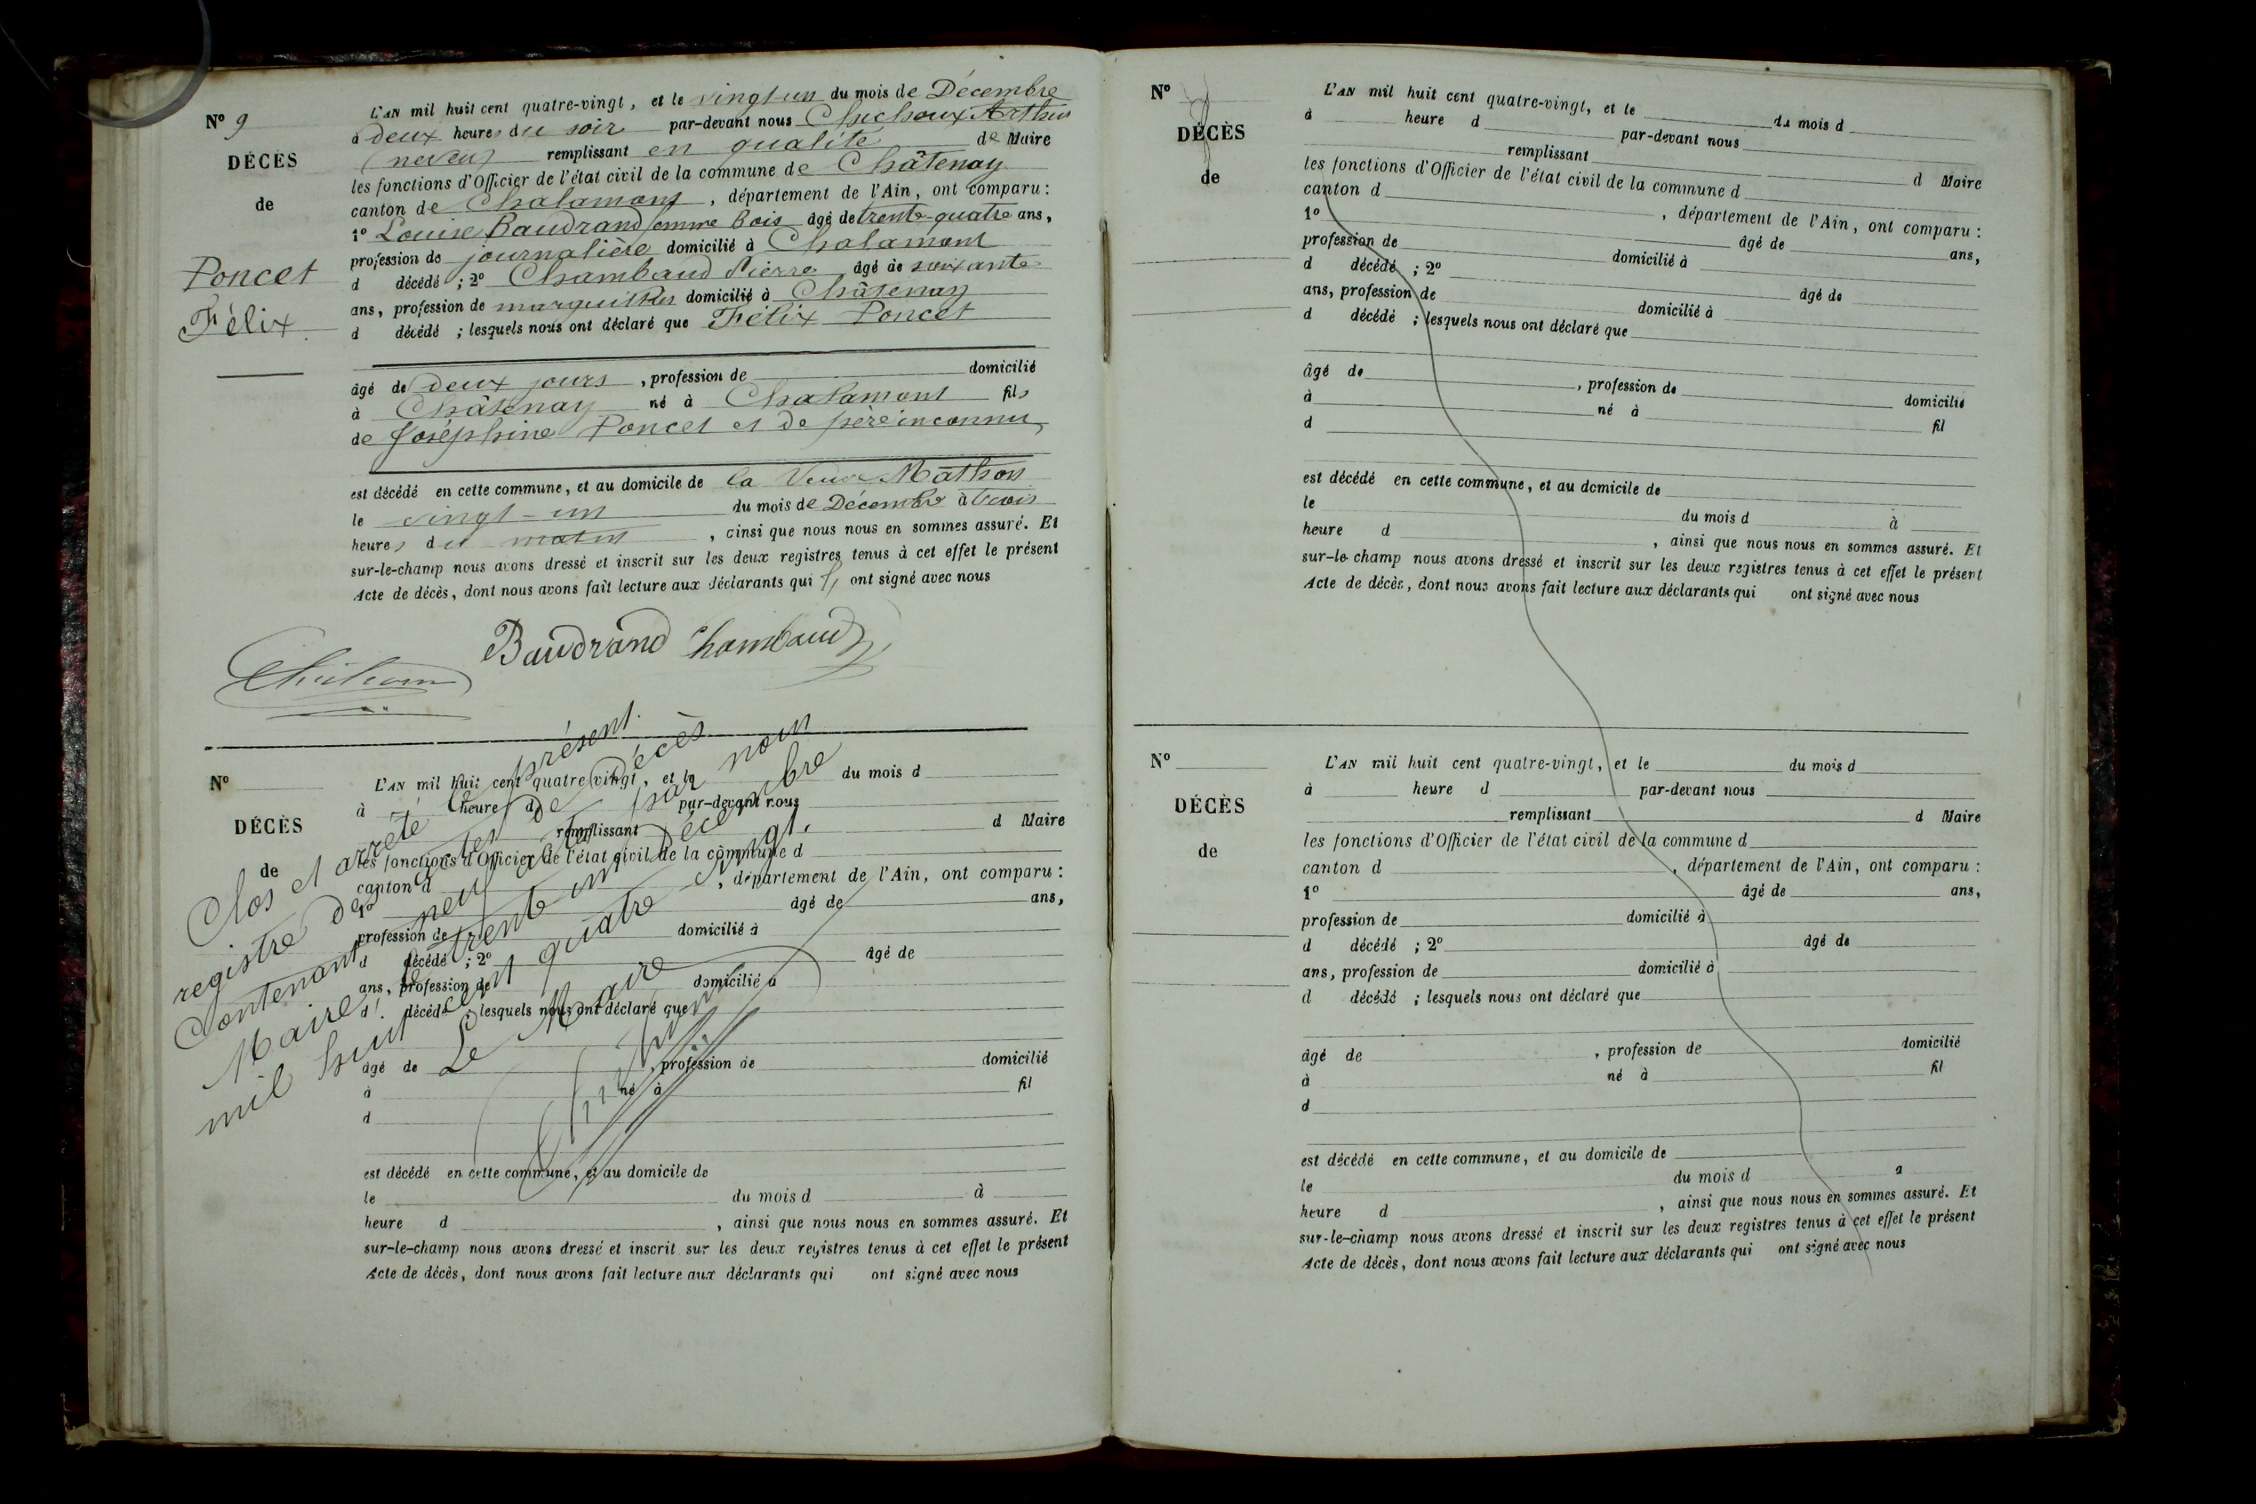 N° 9
DÉCÈS
de
Poncet
Félix
L'AN mil huit cent quatre-vingt, et le vingt un du mois de Décembre
à deux heures du soir par-devant nous Chichoux Arthur
(neveu) remplissant en qualité de Maire
les fonctions d'Officier de l'état civil de la commune de Châtenay
canton de Chalamont, département de l'Ain, ont comparu :
1° Louise Baudrand femme Bois âgé de trente-quatre ans,
profession de journalière domicilié à Chalamont
d décédé ; 2° Chambaud Pierre âgé de soixante
ans, profession de marguillier domicilié à Châtenay
d décédé ; lesquels nous ont déclaré que Félix Poncet
âgé de deux jours, profession de domicilié
à Châtenay né à Chalamont fils
de Joséphine Poncet et de père inconnu
est décédé en cette commune, et au domicile de la Veuve Mathon
le vingt-un du mois de Décembre à trois
heures du matin, ainsi que nous nous en sommes assuré. Et
sur-le-champ nous avons dressé et inscrit sur les deux registres tenus à cet effet le présent
Acte de décès, dont nous avons fait lecture aux déclarants qui ont signé avec nous
Baudrand Chambaud
N°
DÉCÈS
de
L'AN mil huit cent quatre-vingt, et le du mois d
à heure d par-devant nous
remplissant d Maire
les fonctions d'Officier de l'état civil de la commune d
canton d , département de l'Ain, ont comparu :
1° âgé de ans,
profession de domicilié à
d décédé ; 2° âgé de
ans, profession de domicilié à
d décédé ; lesquels nous ont déclaré que
âgé de , profession de domicilié
à né à fil
d
est décédé en cette commune, et au domicile de
le du mois d à
heure d , ainsi que nous nous en sommes assuré. Et
sur-le-champ nous avons dressé et inscrit sur les deux registres tenus à cet effet le présent
Acte de décès, dont nous avons fait lecture aux déclarants qui ont signé avec nous
Clos et arrêté le présent
registre des actes de Décès
Contenant neuf actes par nous
Maire, le trente un Décembre
mil huit cent quatre-vingt.
Le Maire
N°
DÉCÈS
de
L'AN mil huit cent quatre-vingt, et le du mois d
à heure d par-devant nous
remplissant d Maire
les fonctions d'Officier de l'état civil de la commune d
canton d , département de l'Ain, ont comparu :
1° âgé de ans,
profession de domicilié à
d décédé ; 2° âgé de
ans, profession de domicilié à
d décédé ; lesquels nous ont déclaré que
âgé de , profession de domicilié
à né à fil
d
est décédé en cette commune, et au domicile de
le du mois d à
heure d , ainsi que nous nous en sommes assuré. Et
sur-le-champ nous avons dressé et inscrit sur les deux registres tenus à cet effet le présent
Acte de décès, dont nous avons fait lecture aux déclarants qui ont signé avec nous
N°
DÉCÈS
de
L'AN mil huit cent quatre-vingt, et le du mois d
à heure d par-devant nous
remplissant d Maire
les fonctions d'Officier de l'état civil de la commune d
canton d , département de l'Ain, ont comparu :
1° âgé de ans,
profession de domicilié à
d décédé ; 2° âgé de
ans, profession de domicilié à
d décédé ; lesquels nous ont déclaré que
âgé de , profession de domicilié
à né à fil
d
est décédé en cette commune, et au domicile de
le du mois d à
heure d , ainsi que nous nous en sommes assuré. Et
sur-le-champ nous avons dressé et inscrit sur les deux registres tenus à cet effet le présent
Acte de décès, dont nous avons fait lecture aux déclarants qui ont signé avec nous